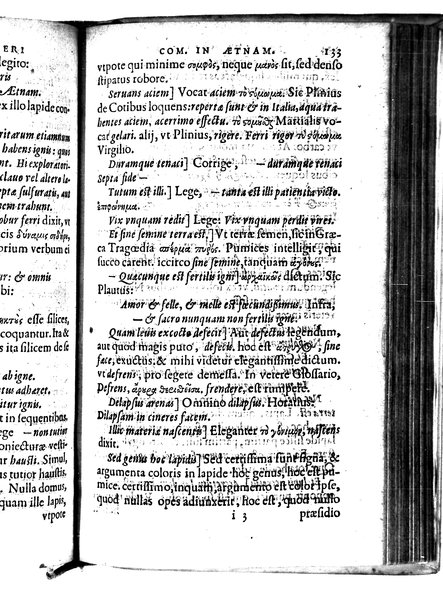 ERI
legito:
ris
Ætnam.
ex illo lapide con
ritarum etiamnum
habens ignis: quo
i. Hi exploratori-
clauo vel altero la-
pta sulfuratis, aut
nem trahunt.
obur ferri dixit, vt
orium verbum ei
ur: & omnis
bi:
esse silices,
coquantur. Ita &
ita silicem de se
ab igne.
tus adhæret.
itur ignis.
t in sequentibus.
ege — non tuim
oniectura vesti-
ur hausti. Simul,
etius turbo haustis.
. Nulla domus,
quam ille lapis,
vtpote
COM. IN ÆTNAM. 133
vtpote qui minime σομφὸς, neque μανὸς sit, sed denso
stipatus robore.
Seruans aciem] Vocat aciem τὸ σόμωμα. Sic Plinius
de Cotibus loquens: repertæ sunt & in Italia, aqua tra-
hentes aciem, acerrimo effectu. τὸ Martialis vo-
cat gelari. alij, vt Plinius, rigere. Ferri rigor τὸ
Virgilio.
Duramque tenaci] Corrige, — duramque tenaci
Septa fide —
Tutum est illi.] Lege, — tanta est illi patientia victo.
Vix vnquam redit] Lege: Vix vnquam perdit vires.
Et sine semine terra est.] Vt terræ semen, sic in Græ-
ca Tragœdia σπέρμα πυρὸς. Pumices intelligit, qui
succo carent. iccirco sine semine, tanquam
— Quacunque est fertilis igni] ἀρχαϊκῶς dictum. Sic
Plautus:
Amor & felle, & melle est fœcundissimus. Infra,
— & sacro nunquam non fertilis igne.
Quam leuis excocto defecit] Aut defectus legendum,
aut quod magis puto, defecit. hoc est sine
face, exuctus; & mihi videtur elegantissime dictum.
vt defreni, pro segete demessa. In vetere Glossario,
Defrens, frendere, est rumpere.
Dilapsus arenas] Omnino dilapsus. Horatius:
Dilapsam in cineres facem.
Illic materia nascenti] Eleganter τὸ nascens
dixit.
Sed genus hoc lapidis] Sed certissima sunt signa, &
argumenta coloris in lapide hoc genus, hoc est pu-
mice. certissimo, inquam, argumento est color ipse,
quod nullas opes adiunxerit, hoc est, quod nullo
i 3 præsidio